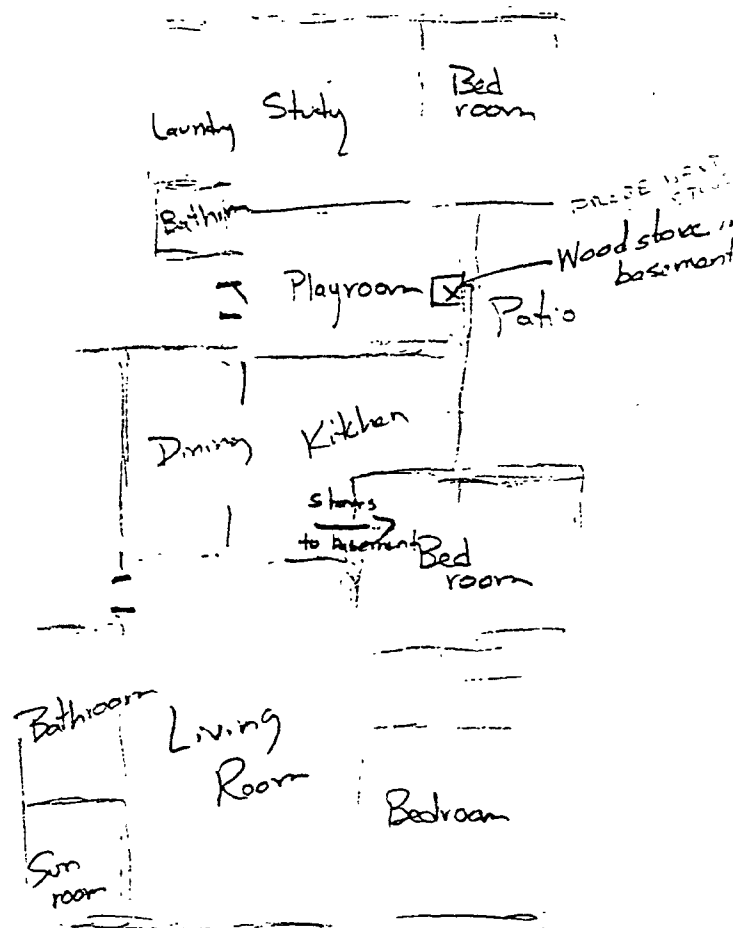 Bed
room
Laundry Study
Bathrm
Wood stove in
basement
Playroom
Patio
Dining
Kitchen
stairs
to basement
Bed
room
Bathroom
Living
Room
Bedroom
Sun
room